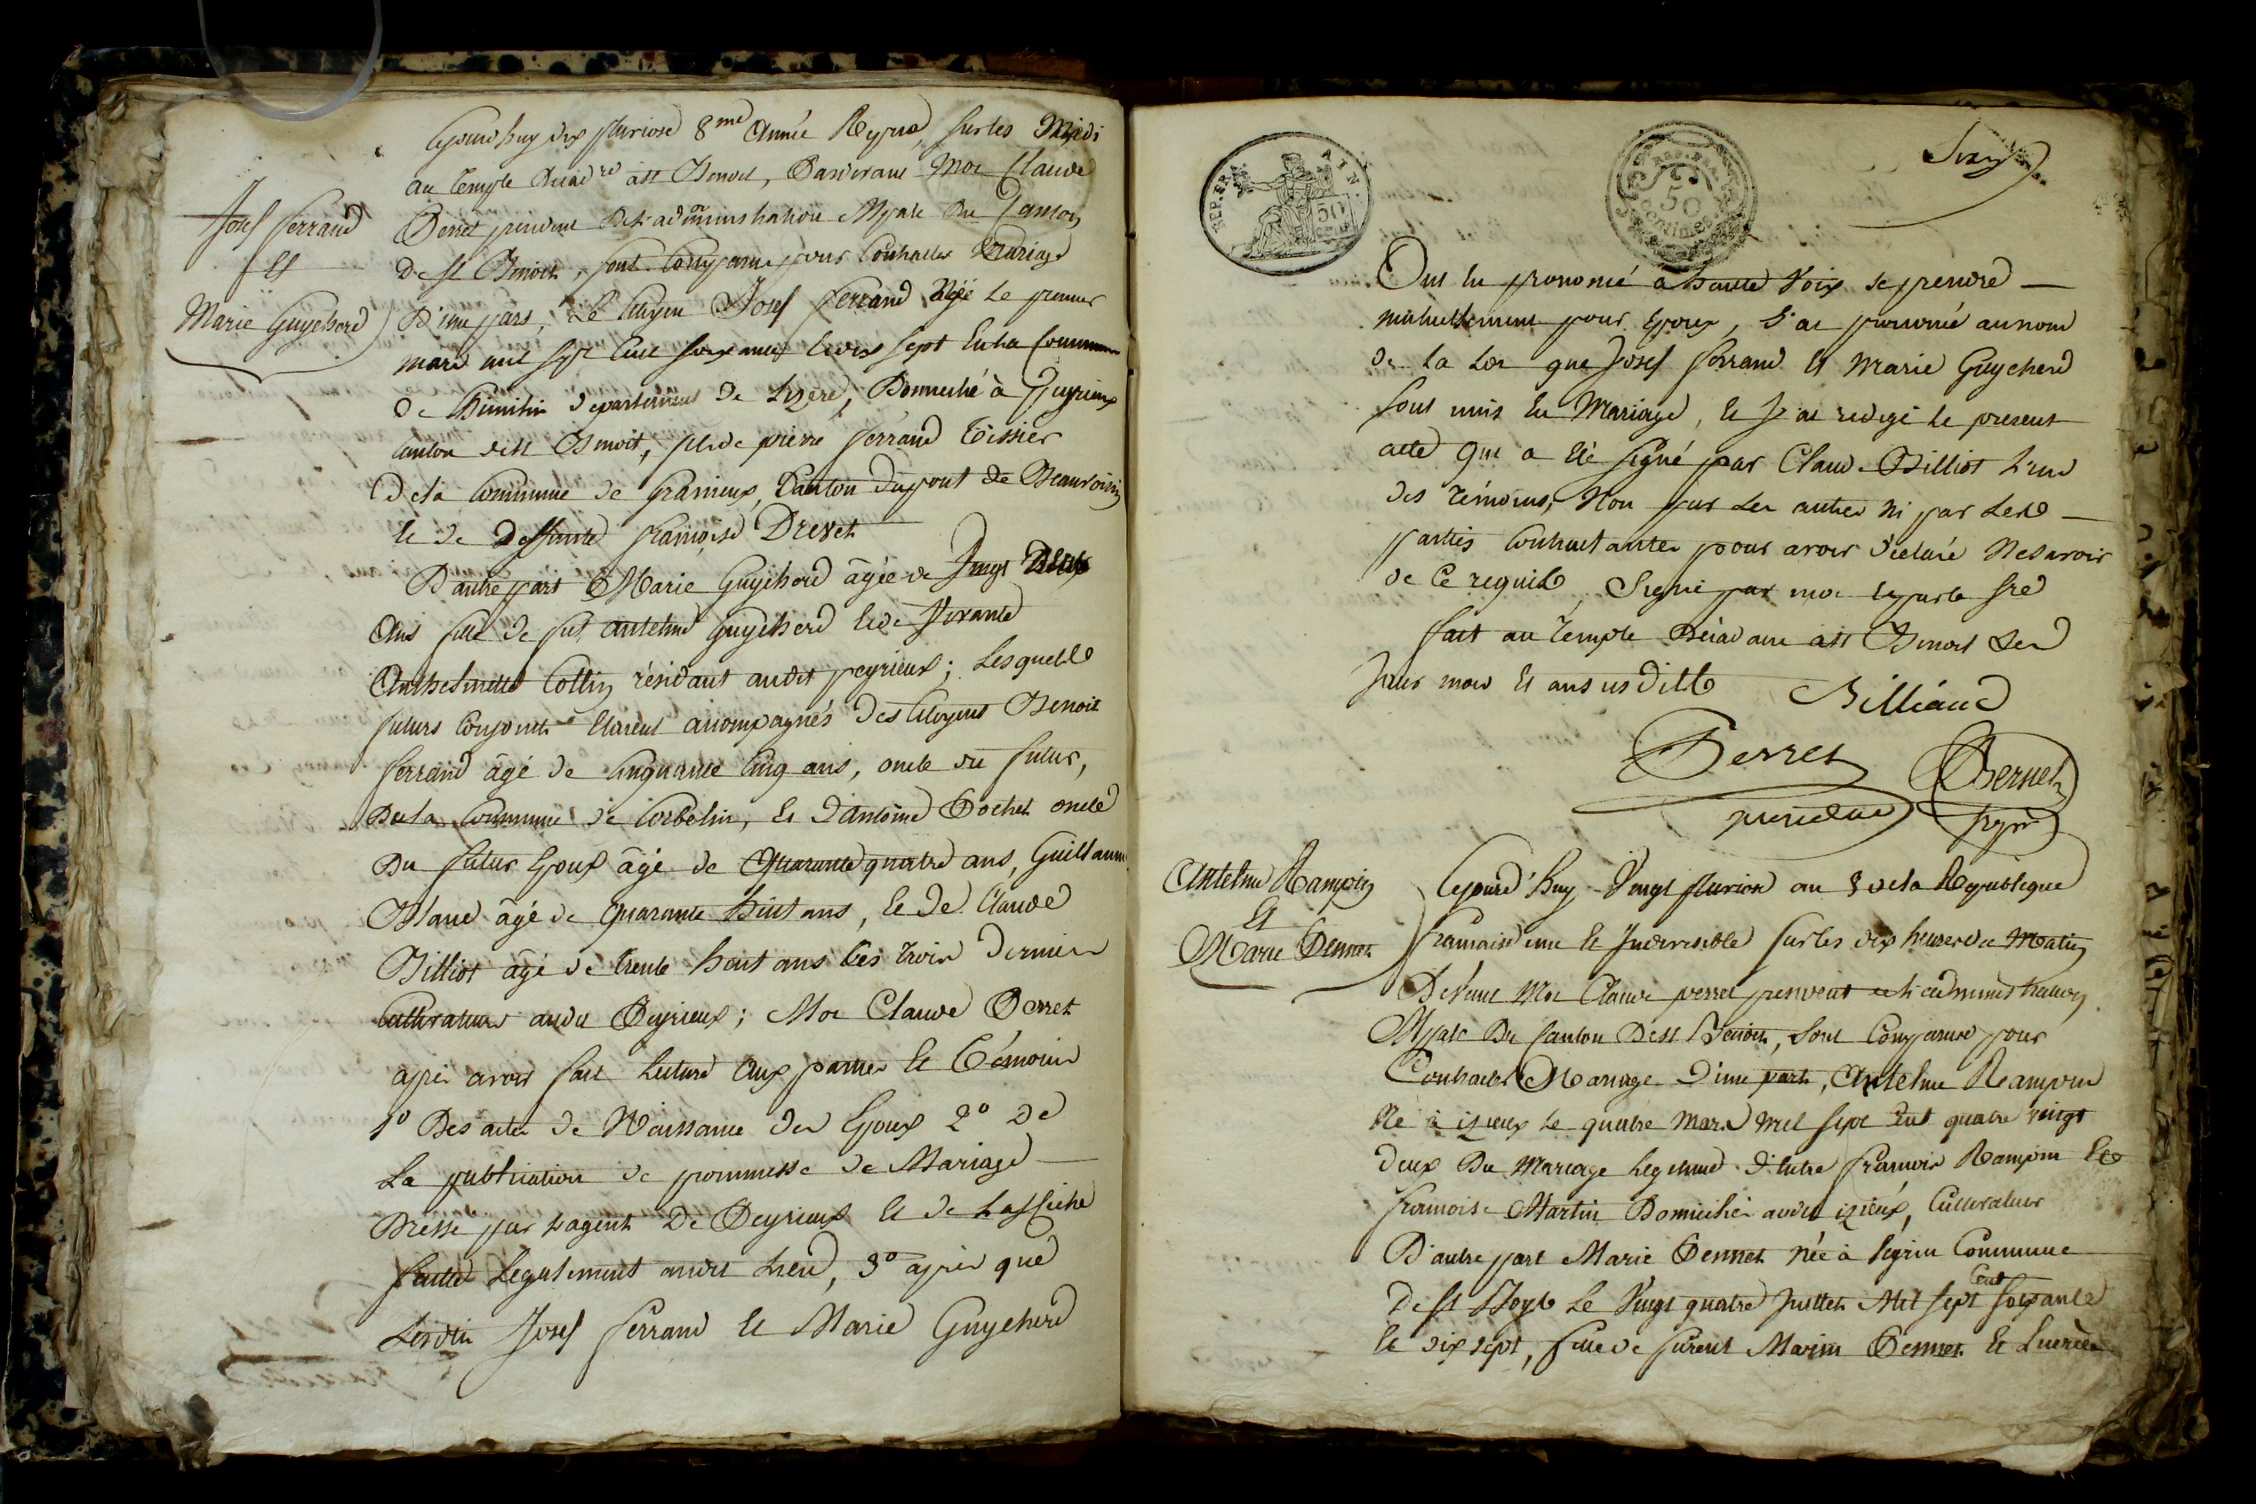 Cejourd'huy dix pluviose 8me Année Repne, sur les Midi
au temple Décadre à St Benoit, Pardevant Moi Claude
Perret président de l'administration Mpale du Canton
de St Benoit, sont comparu pour Contracter Mariage
D'une part, Le Citoyen Josef ferrand Né le premier
mars mil sept cent soixante dix sept En la Commune
de département de Lizere, Domicilié à Peyrieux
canton de St Benoit, fils de pierre ferrand tissier
de la Commune de Granieux, Canton du pont de Beauvoisin
et de Deffunte françoise Drevet
D'autre part Marie Guycherd âgée de Vingt Deux
Ans fille de fut antelme Guycherd et de Vivante
Anthelmette Collin résidant audit peyrieux; Lesquels
futurs Conjoints Etaient accompagnés des Citoyens Benoit
ferrand âgé de cinquante cinq ans, oncle du futur,
De la Commune de Corbelin, et d'Antoine Pochet oncle
Du futur Epoux âgé de Quarante quatre ans, Guillaume
Blanc âgé de quarante huit ans, et de Claude
Billiot âgé de trente huit ans les trois Dernier
Cultivateurs audit Peyrieux; Moi Claude Perret
après avoir fait Lecture aux parties et témoins
1º Des actes de Naissance des Epoux 2º de
La publication de promesse de Mariage
Dressé par l'agent De Peyrieux et de Laffiche
faitte Legalement audit Lieu, 3º après que
Lesdits Josef ferrand et Marie Guycherd
Josef ferrand
Et
Marie Guycherd
REP. FRA.
AIN.
50
REP. FRA.
50
centimes
Ont eu prononcé à haute Voix se prendre
mutuellement pour Epoux, J'ai prononcé au nom
de la Loi que Josef ferrand et Marie Guycherd
sont unis en Mariage, et J'ai redigé le present
acte qui a été signé par Claude Billiot L'un
des témoins, Non par les autres ni par les
parties Contractantes pour avoir déclaré Ne savoir
de ce requis, Signé par moi et par le sre
fait au temple Décadaire à St Benoit Les
Jour mois et an susdits
Billiaud
Perret
président
Bernet
Antelme Rampin
Et
Marie Pennet
Cejourd'huy Vingt pluviose an 8 de la République
française une et Indivisible sur les dix heures du Matin
Devant Moi Claude perret président de l'administration
Mpale Du Canton De St Benoit, Sont Comparus pour
Contracter Mariage D'une part, Antelme Rampin
Né à izieux le quatre Mars Mil sept cent quatre vingt
deux Du Mariage Legitime d'Entre françois Rampin Et
françoise Martin Domicilié audit izieux, Cultivateur
D'autre part Marie Pennet Née à Commune
De St Le Vingt quatre Juillet Mil sept Cent soixante
et dix sept, fille de furent Marin Pennet et